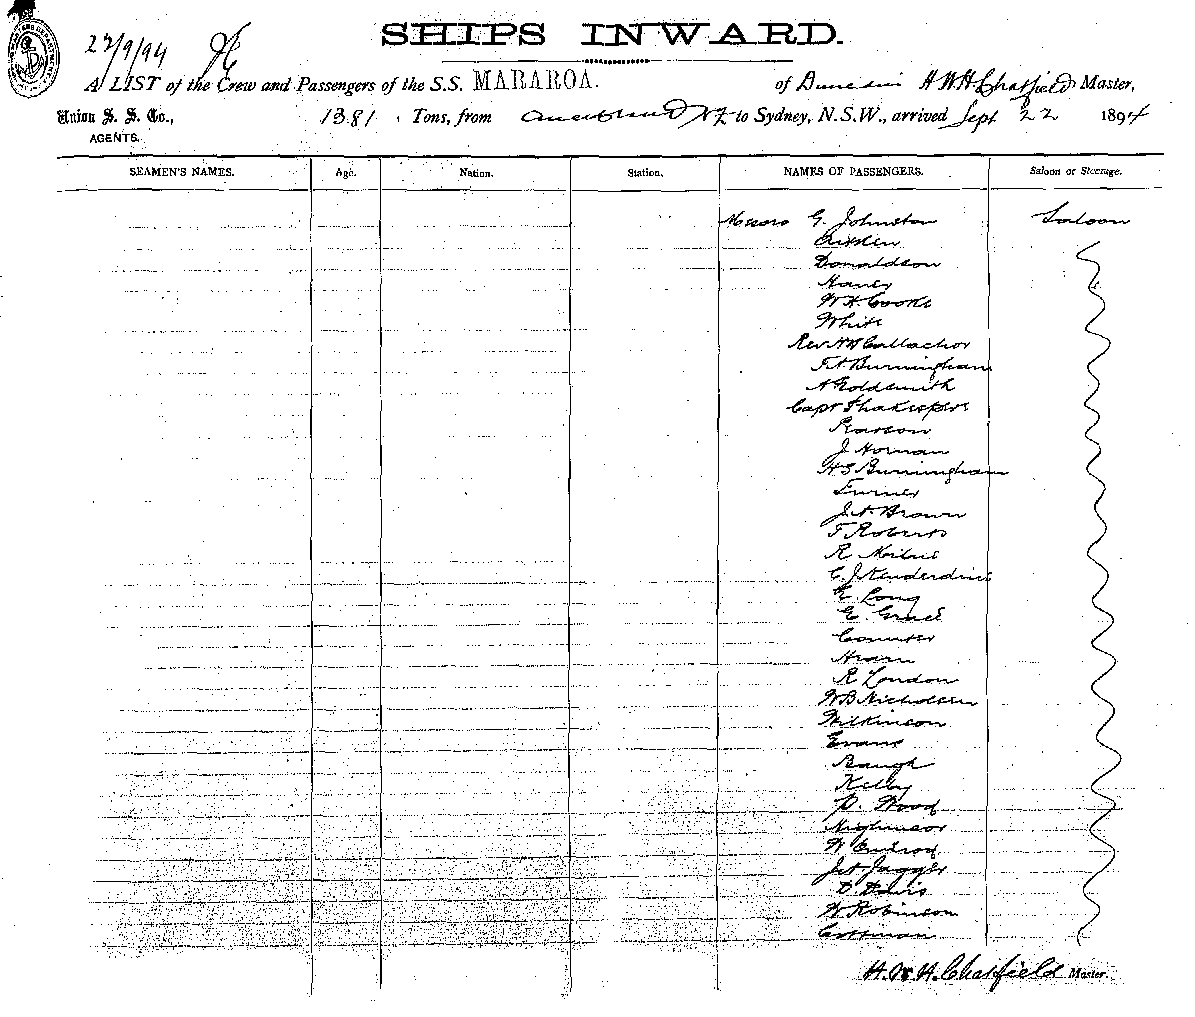 22/9/94
SHIPS INWARD.
A LIST of the Crew and Passengers of the S.S. MARAROA. of Dunedin H W H Chatfield Master,
Union S. S. Co., 1381 Tons, from Auckland NZ to Sydney, N.S.W., arrived Sept 22 1894
AGENTS.
SEAMEN'S NAMES. Age. Nation. Station. NAMES OF PASSENGERS. Saloon or Steerage.
Messrs G. Johnston Saloon
Aitken
Donaldson
W H Cooke
White
Rev Gallachor
Burningham
A Goldsmith
Capt Shakespere
Pearson
J Horman
H S Burningham
Turner
J. A. Brown
F Roberts
R
C. J. Kenderdine
E. Long
E. Grace
Hearn
R London
W B Nicholson
Wilkinson
Evans
Baugh
Kelly
P. Wood
W
J. A. Jagger
D Davis
W Robinson
H. W. H. Chatfield Master.